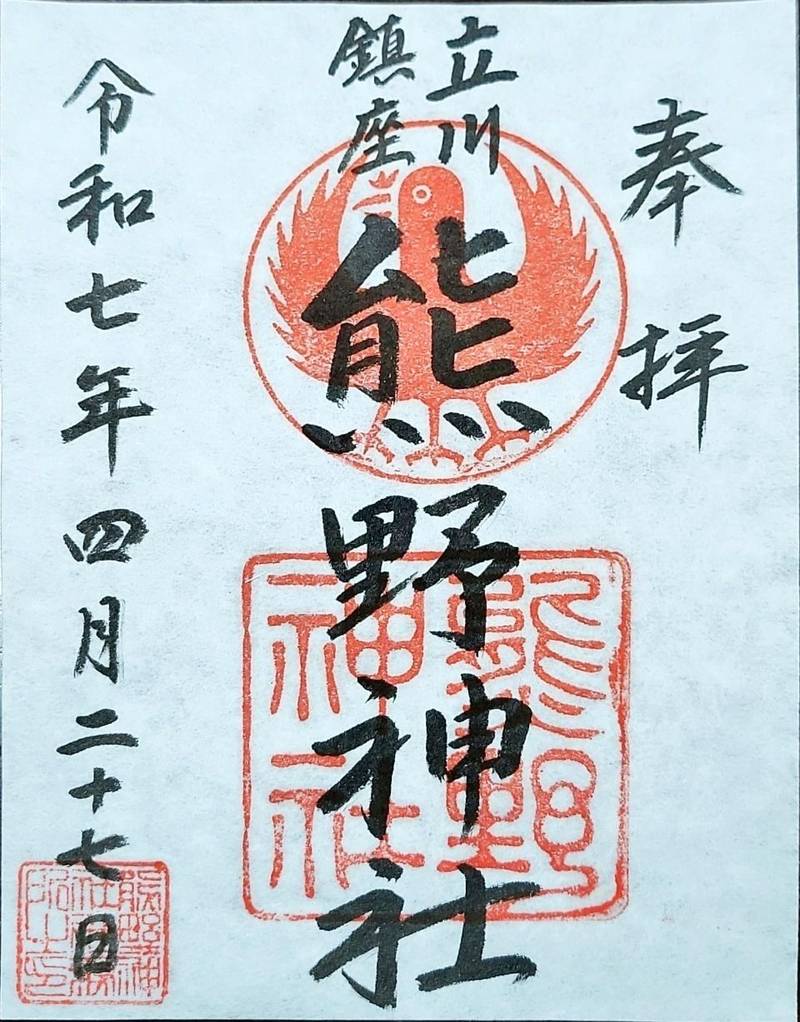 奉拝
立川
鎮座
熊野神社
熊野
神社
令和七年四月二十七日